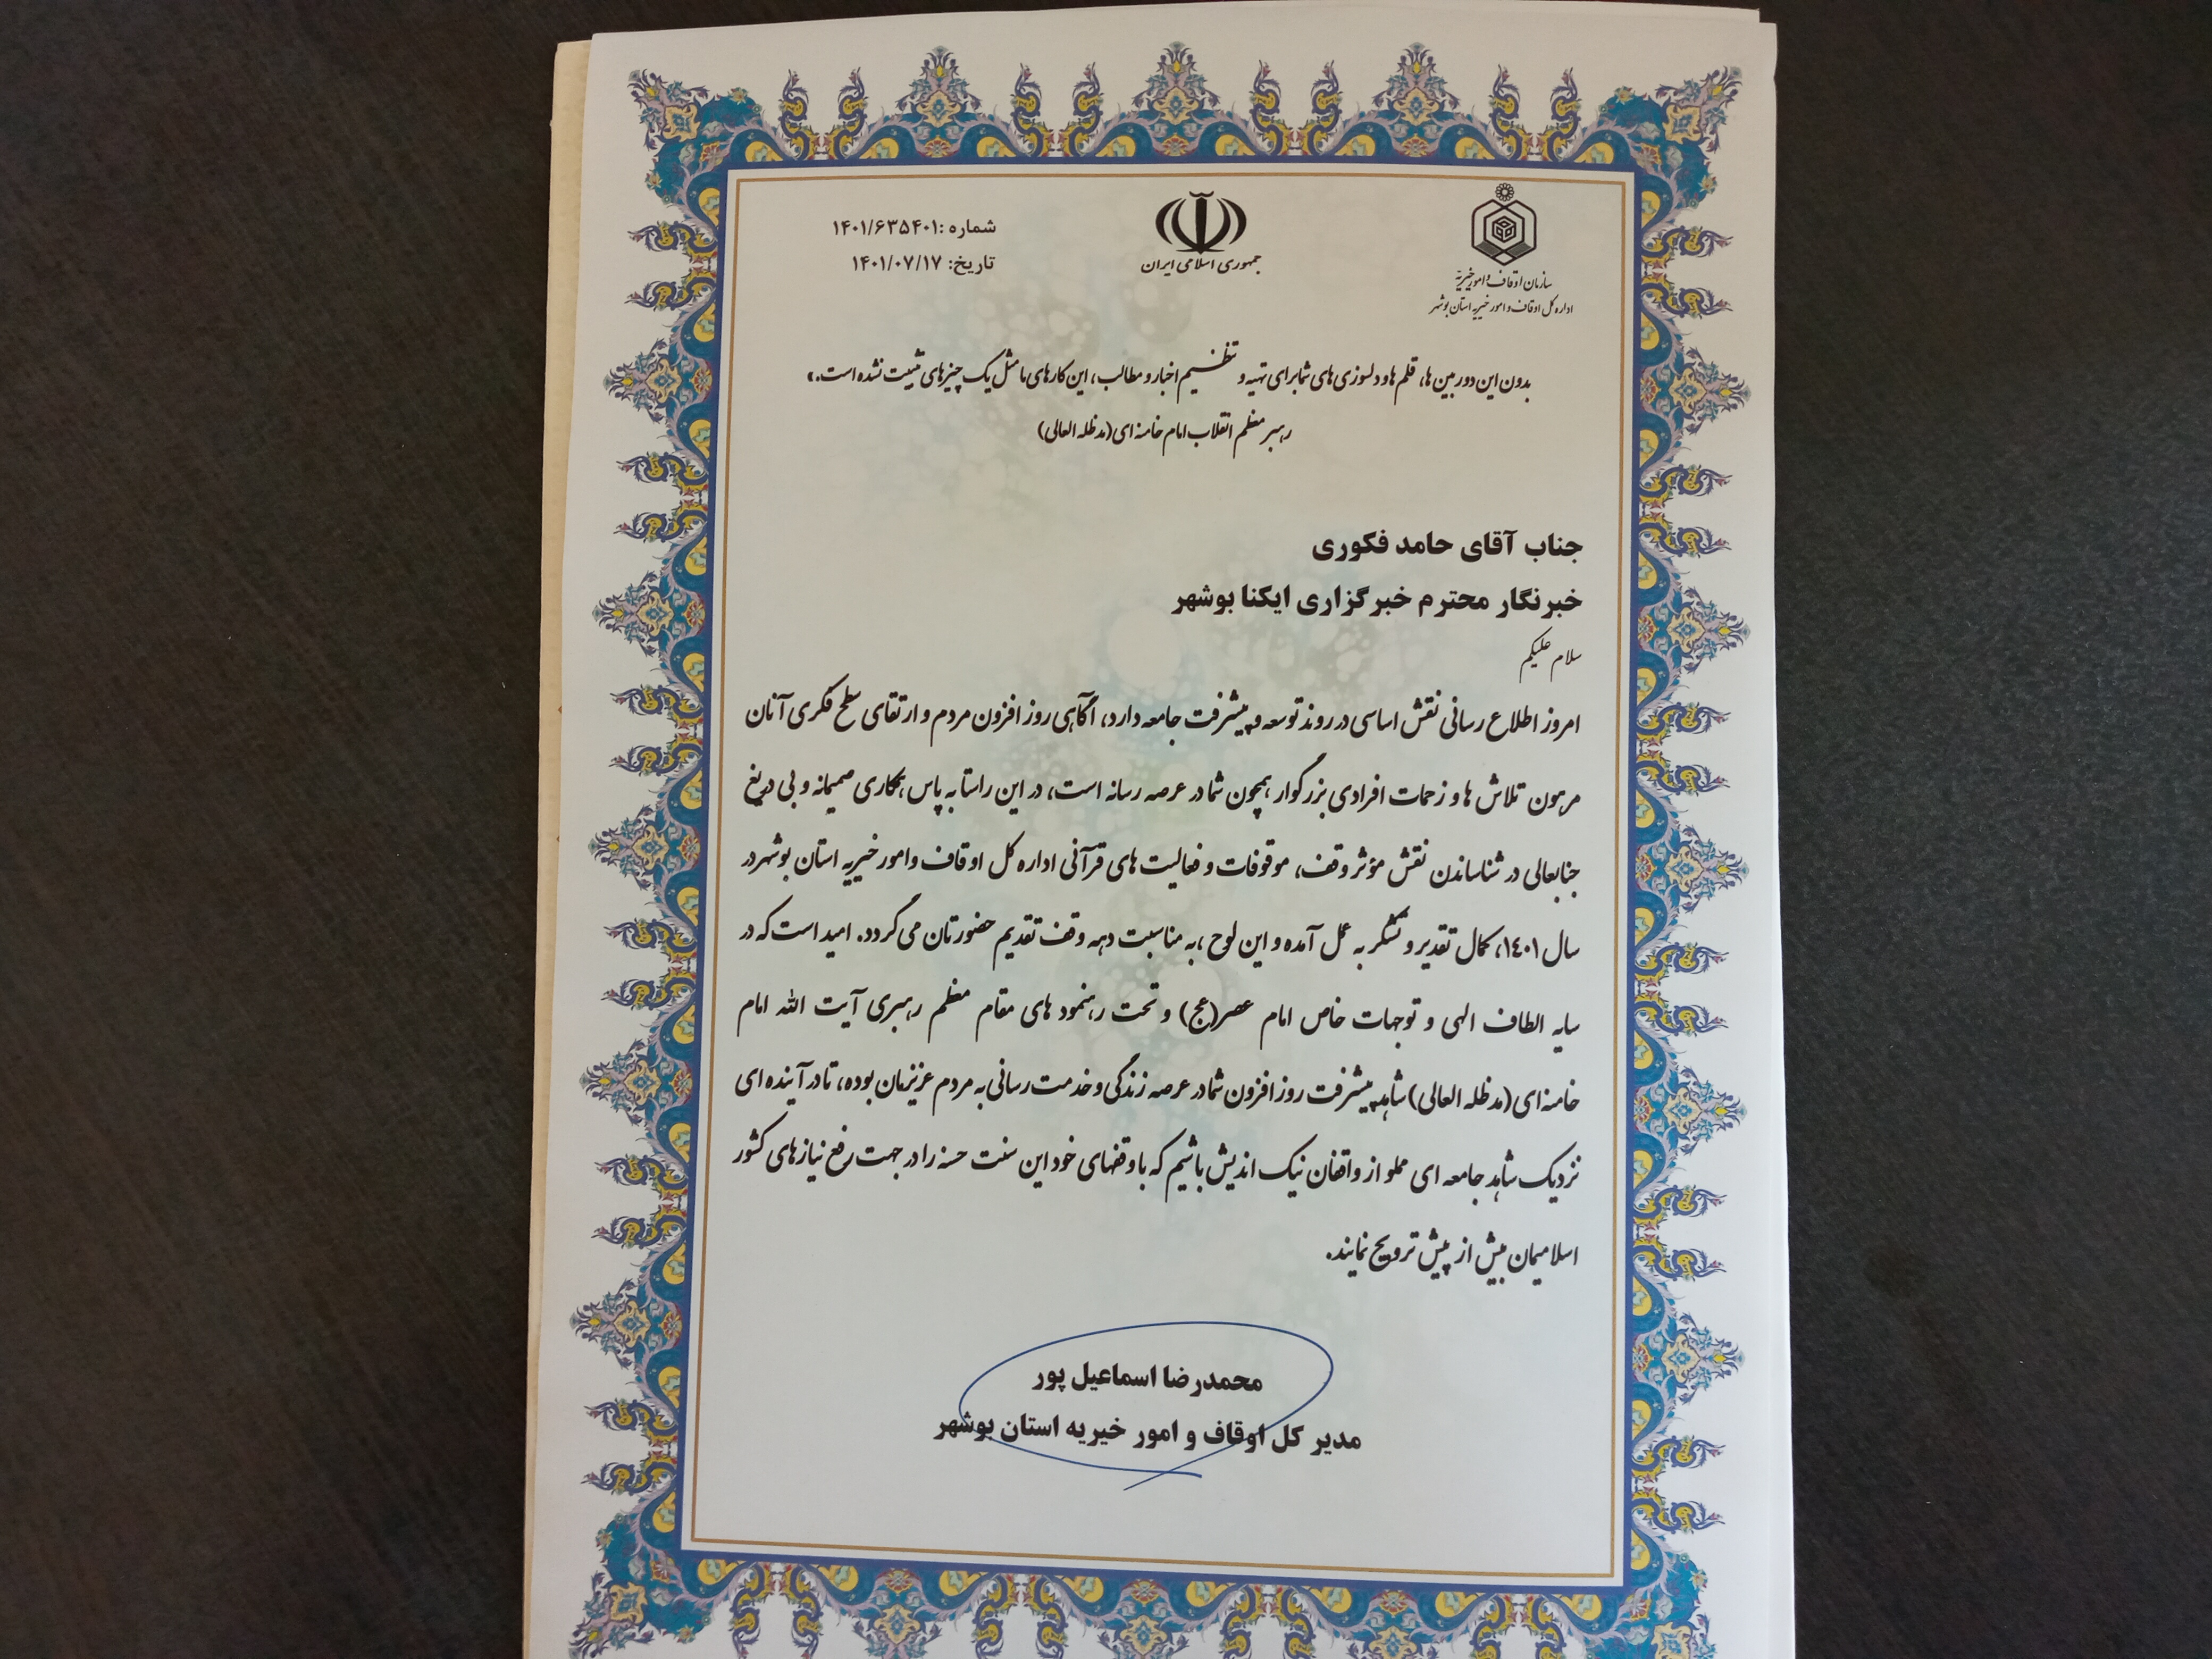 سازمان اوقاف و امور خیریه
اداره کل اوقاف و امور خیریه استان بوشهر
جمهوری اسلامی ایران
شماره :۱۴۰۱/۶۳۵۴۰۱
تاریخ: ۱۴۰۱/۰۷/۱۷
بدون این دوربین ها، قلم ها و دلسوزی های شما برای تهیه و تنظیم اخبار و مطالب، این کارهای ما مثل یک چیزهای تثبیت نشده است.»
رهبر معظم انقلاب امام خامنه ای(مدظله العالی)
جناب آقای حامد فکوری
خبرنگار محترم خبرگزاری ایکنا بوشهر
سلام علیکم
امروز اطلاع رسانی نقش اساسی در روند توسعه و پیشرفت جامعه دارد، آگاهی روز افزون مردم و ارتقای سطح فکری آنان
مرهون تلاش ها و زحمات افرادی بزرگوار همچون شما در عرصه رسانه است، در این راستا به پاس همکاری صمیمانه و بی دریغ
جنابعالی در شناساندن نقش مؤثر وقف، موقوفات و فعالیت های قرآنی اداره کل اوقاف وامور خیریه استان بوشهر در
سال ۱۴۰۱، کمال تقدیر و تشکر به عمل آمده و این لوح ،به مناسبت دهه وقف تقدیم حضورتان می گردد. امید است که در
سایه الطاف الهی و توجهات خاص امام عصر(عج) و تحت رهنمود های مقام معظم رهبری آیت الله امام
خامنه ای(مدظله العالی) شاهد پیشرفت روز افزون شما در عرصه زندگی و خدمت رسانی به مردم عزیزمان بوده، تا در آینده ای
نزدیک شاهد جامعه ای مملو از واقفان نیک اندیش باشیم که با وقفهای خود این سنت حسنه را در جهت رفع نیازهای کشور
اسلامیمان بیش از پیش ترویج نمایند.
محمدرضا اسماعیل پور
مدیر کل اوقاف و امور خیریه استان بوشهر